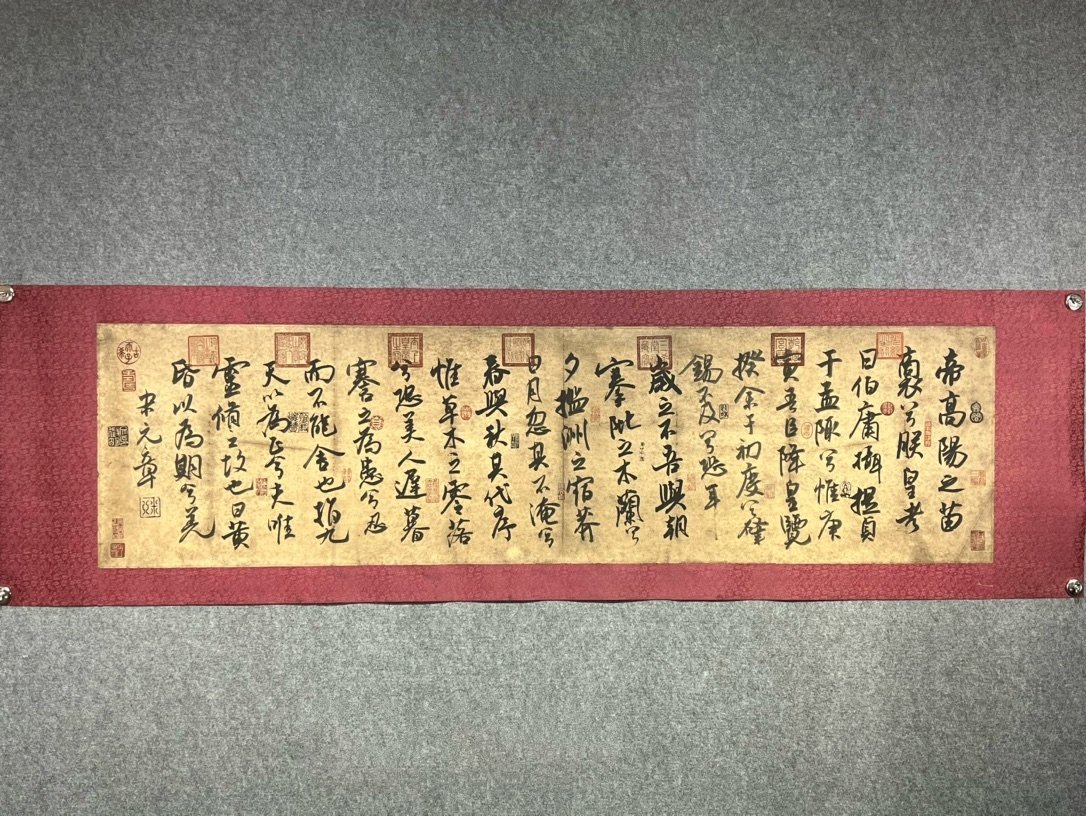 帝高陽之苗
裔兮朕皇考
曰伯庸攝提貞
于孟陬兮惟庚
寅吾以降皇覽
揆余于初度兮肇
錫不及兮恐年
歲之不吾與朝
搴阰之木蘭兮
夕攬洲之宿莽
日月忽其不淹兮
春與秋其代序
惟草木之零落
兮恐美人遲暮
謇之為患兮忍
而不能舍也指九
天以為正兮夫唯
靈脩之故也曰黃
昏以為期兮羌
米元章